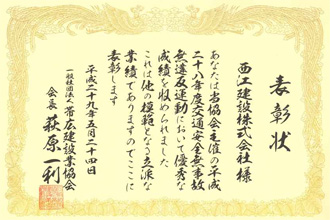 表彰状
西江建設株式会社 様
あなたは当協会主催の平成
二十八年度交通安全無事故
無違反運動において優秀な
成績を収められました
これは他の模範となる立派な
業績でありますのでここに
表彰します
平成二十九年五月二十四日
一般社団法人 帯広建設業協会
会長 萩原一利